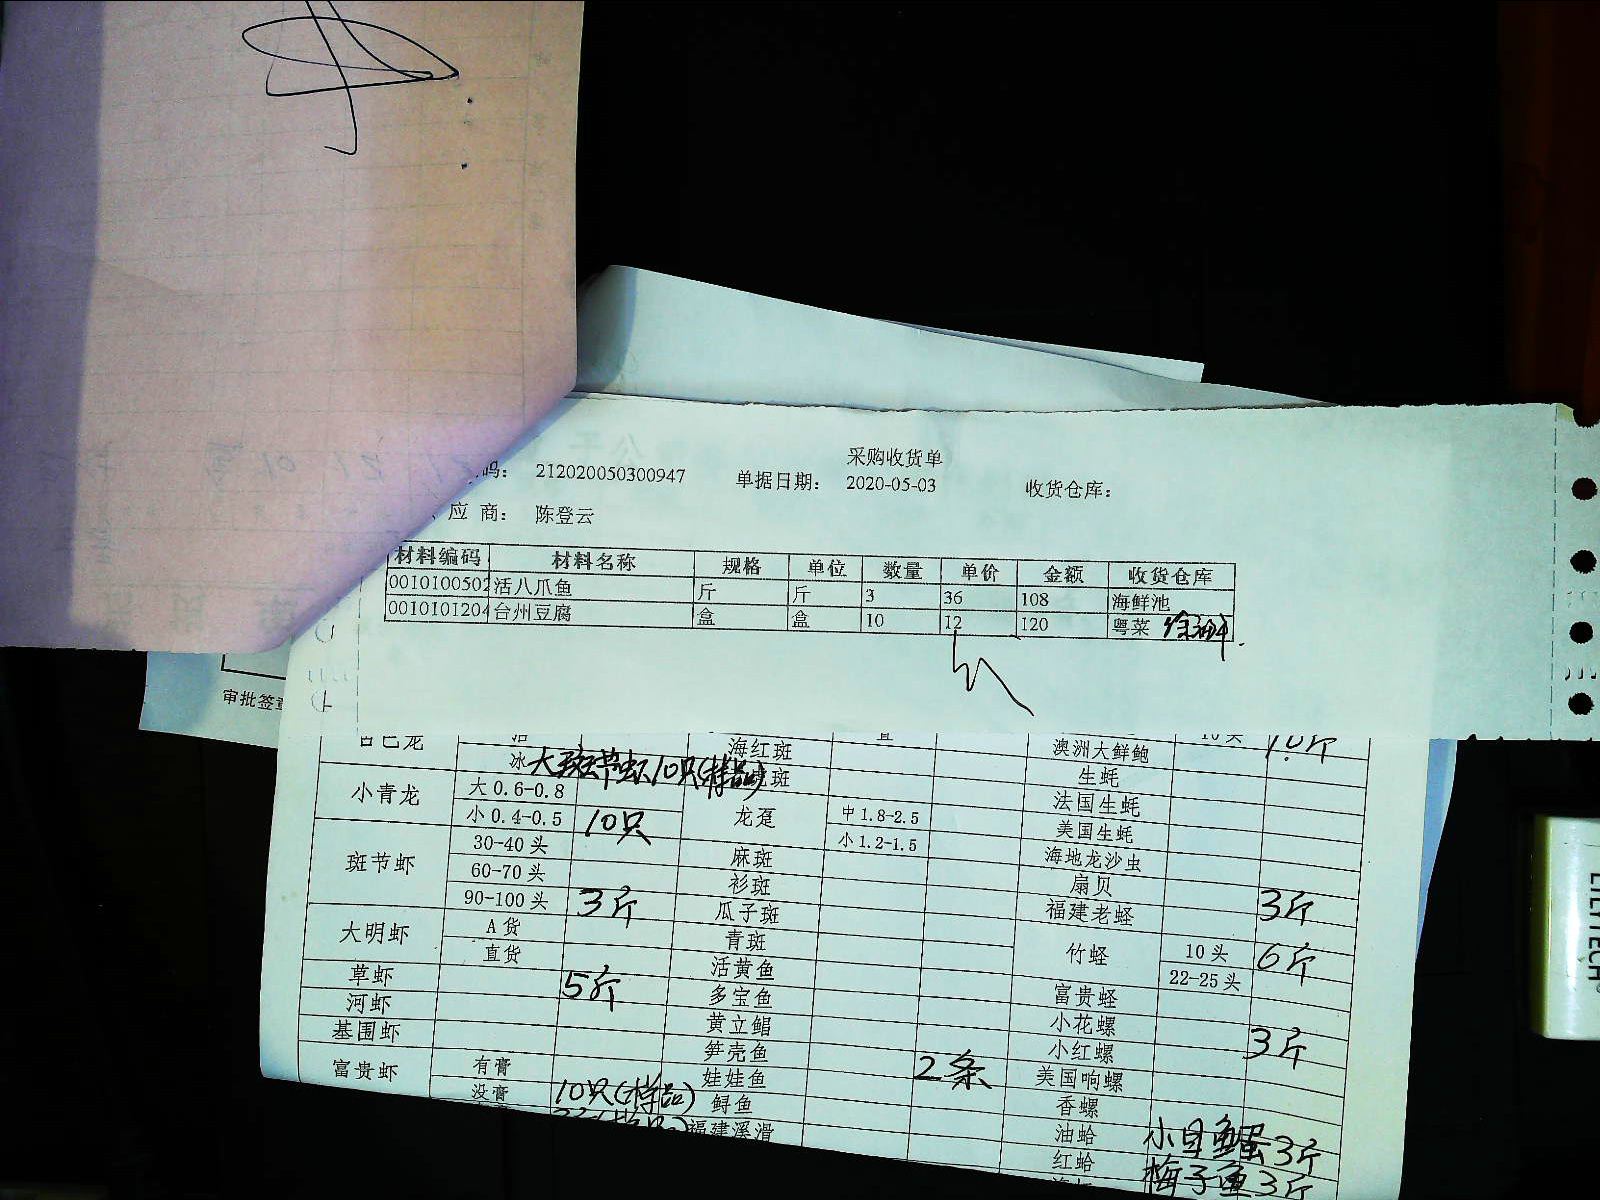 采购收货单
码： 212020050300947 单据日期： 2020-05-03 收货仓库：
应 商： 陈登云
材料编码 材料名称 规格 单位 数量 单价 金额 收货仓库
0010100502 活八爪鱼 斤 斤 3 36 108 海鲜池
0010101204 台州豆腐 盒 盒 10 12 120 粤菜
审批签章
海红斑 澳洲大鲜鲍 10斤
冰 大斑节虾10只(样品) 斑 生蚝
小青龙 大0.6-0.8 龙趸 中1.8-2.5 法国生蚝
小0.4-0.5 10只 小1.2-1.5 美国生蚝
斑节虾 30-40头 麻斑 海地龙沙虫
60-70头 衫斑 扇贝
90-100头 3斤 瓜子斑 福建老蛏 3斤
大明虾 A货 青斑 竹蛏 10头 6斤
直货 活黄鱼 22-25头
草虾 5斤 多宝鱼 富贵蛏
河虾 黄立鲳 小花螺
基围虾 笋壳鱼 小红螺 3斤
富贵虾 有膏 娃娃鱼 2条 美国响螺
没膏 10只(样品) 鲟鱼 香螺
福建溪滑 油蛤 小目鱼蛋3斤
红蛤 梅子鱼3斤
LILYTECH